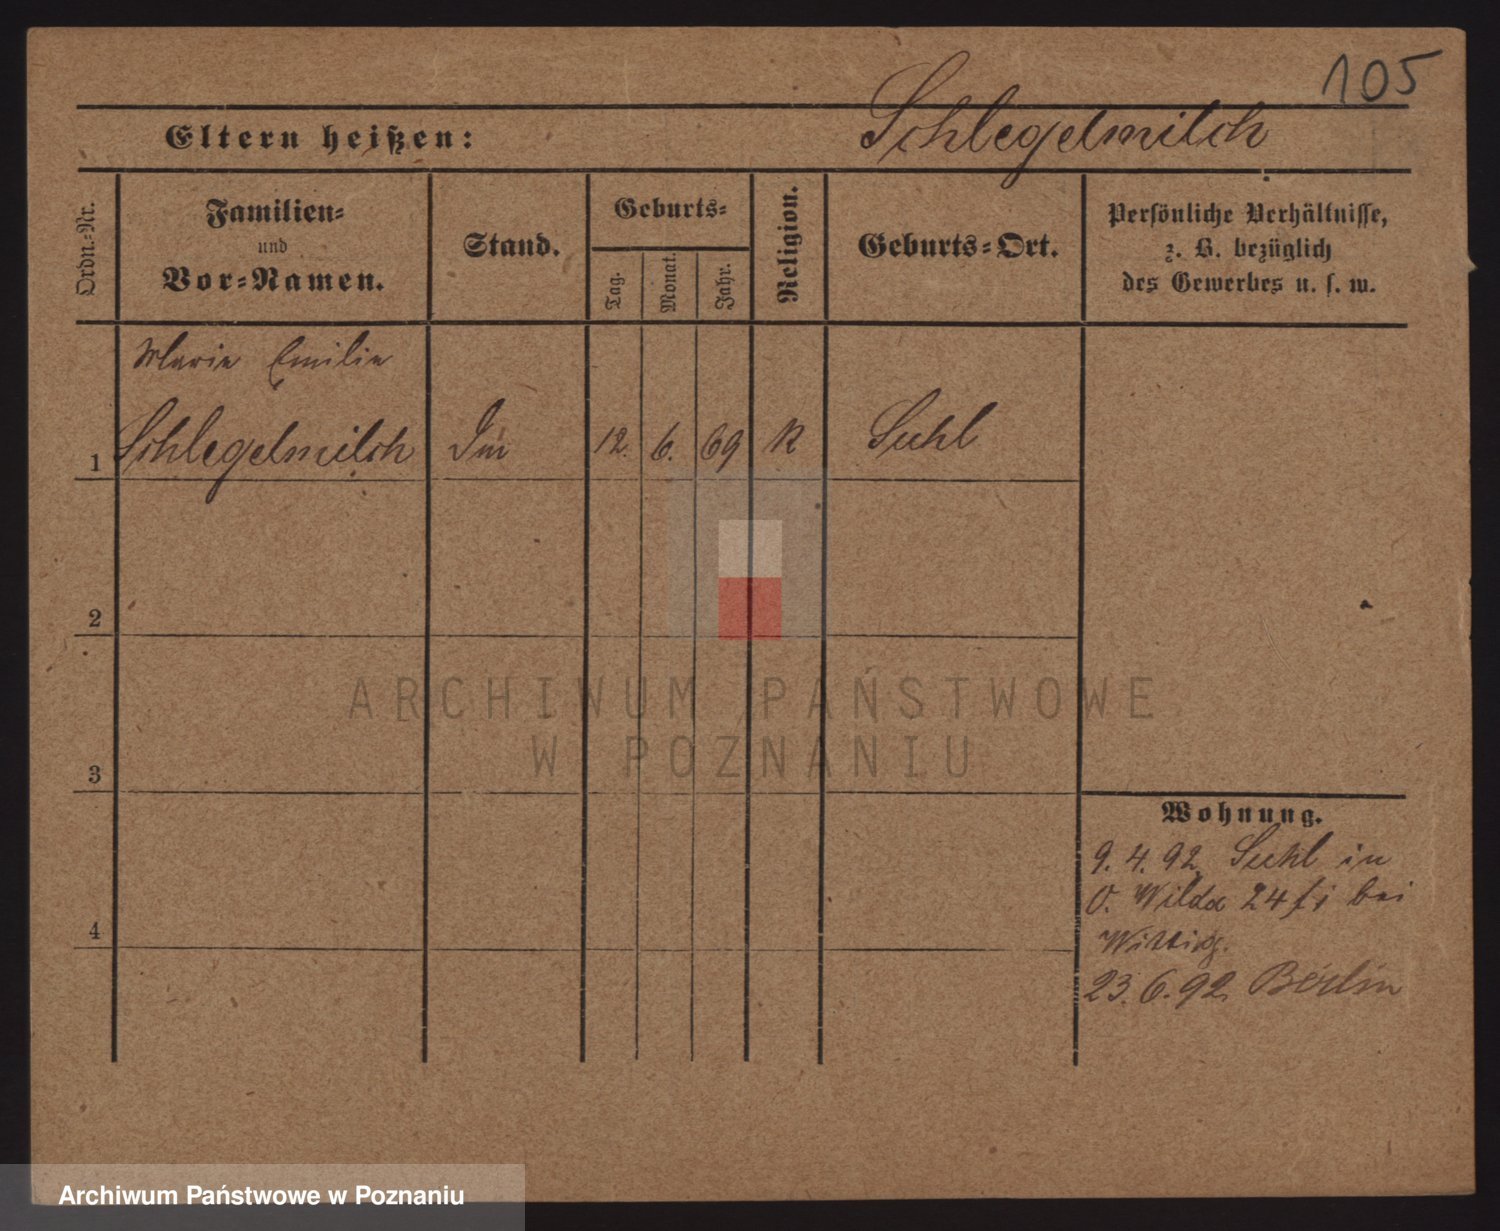 105
Schlegelmilch
Eltern heißen:
Ordn.-Nr.
Familien-
und
Vor-Namen.
Stand.
Geburts-
Tag.
Monat.
Jahr.
Religion.
Geburts-Ort.
Persönliche Verhältnisse,
z. B. bezüglich
des Gewerbes u. s. w.
Marie Emilie
1 Schlegelmilch 12. 6. 69 K Suhl
2
3
4
Wohnung.
9. 4. 92 Suhl in
O. Wilda 24 bei
Wittig.
23. 6. 92 Berlin
ARCHIWUM PAŃSTWOWE
W POZNANIU
Archiwum Państwowe w Poznaniu